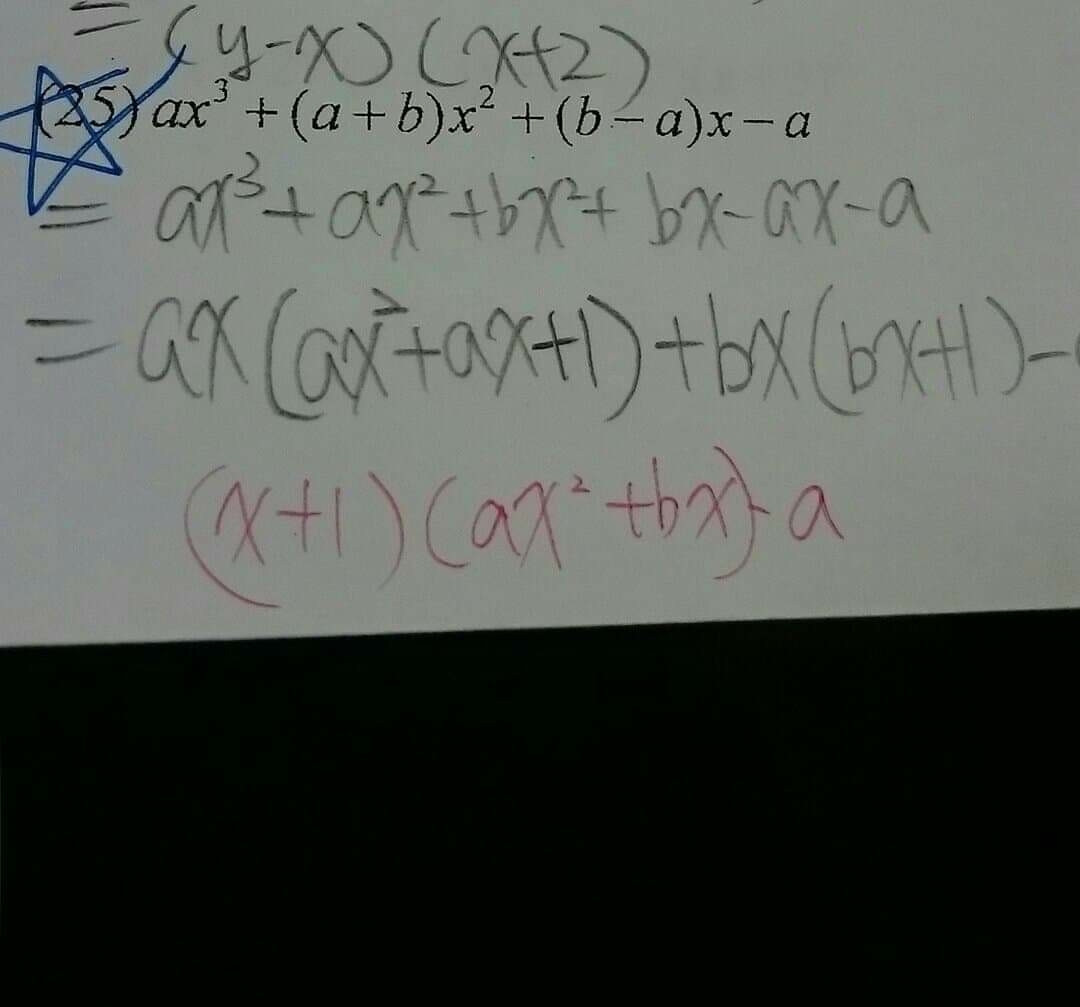 = (y-x)(x+2)
(25) ax³ + (a+b)x² + (b-a)x - a
= ax³ + ax² + bx² + bx - ax - a
= ax(ax² + ax + 1) + bx(bx+1) -
(x+1)(ax² + bx) - a